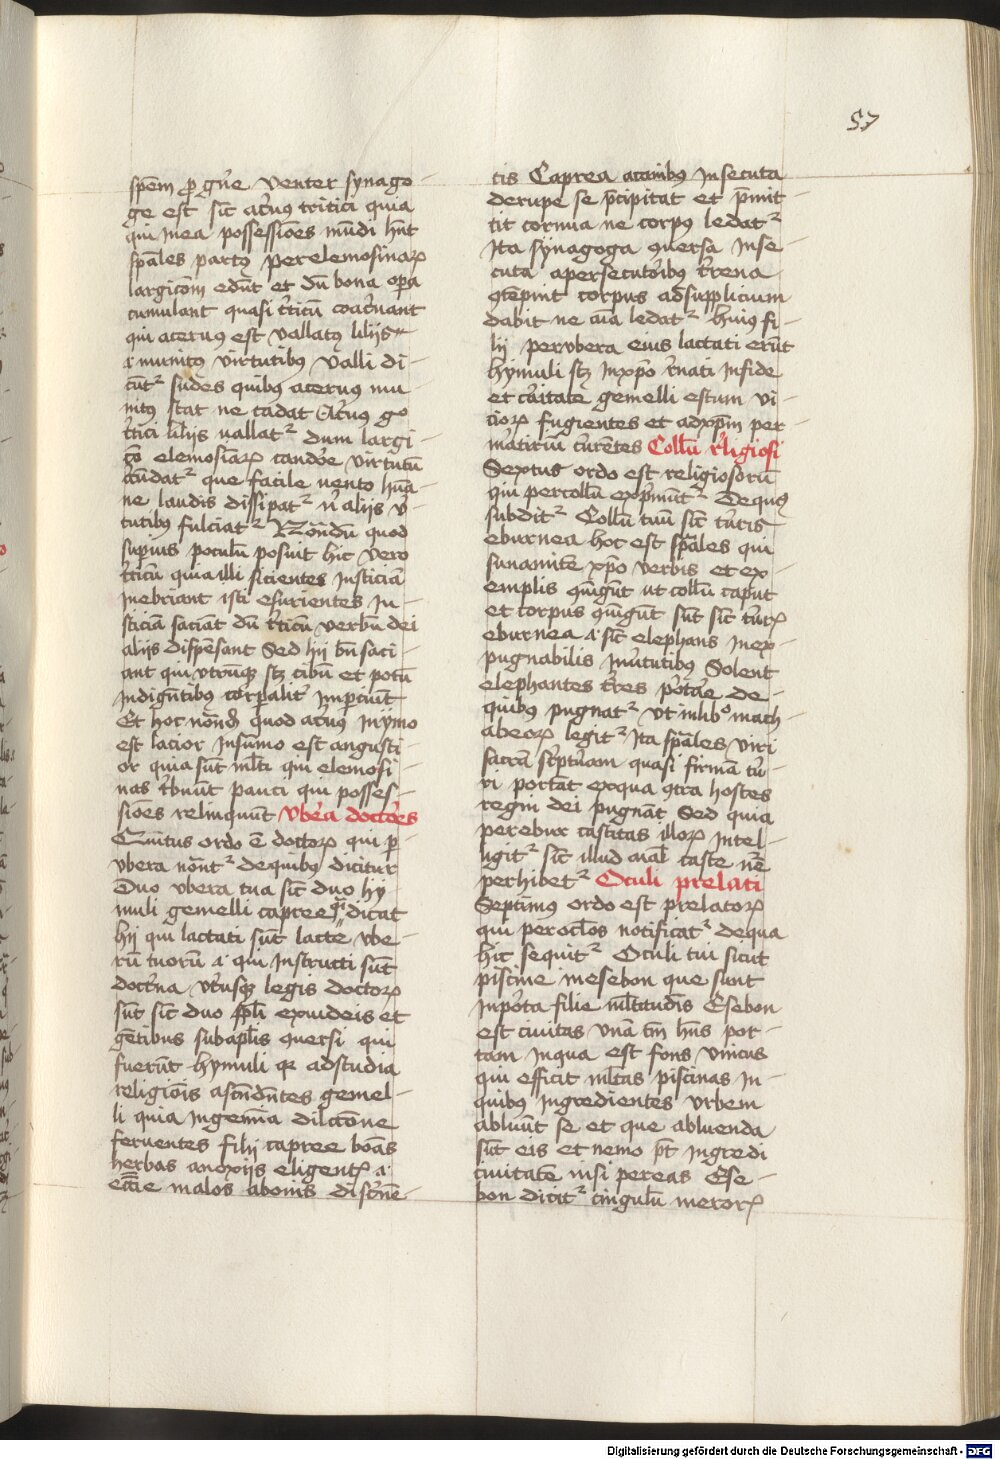 57
spēm ꝓ gͥue venter synago-
ge est sic̄ aͨruus tritici quia
qui mea possessiōes mūdi hn̄t
spāles partꝫ per elemosinaꝝ
largicōm edūt et dū bona oꝑa
cumulant quasi tͥticū coaͨruant
qui aceruus est vallatꝫ lilijs
.i. munitꝫ virtutibꝫ valli di-
cūtᷣ sudes quibꝫ aceruus mu-
nitꝫ stat ne cadat Aͨruus gͦ
tͥtici lilijs uallatᷣ dum largi-
cō elemosīaꝝ candoͬe virtutū
que facile uento hūa-
ne laudis dissipatᷣ nͥ alijs vͥ-
tutibꝫ fulciatᷣ Notādū quod
supͥus poculū posuit hic vero
tͥticū quia illi sicientes iusticiā
inebriant isti esurientes iu-
sticiā saciāt dū tͥticū verbū dei
alijs dispēsant Sed hij bn̄ saci-
ant qui vtrūqꝫ scꝫ cibū et potū
indigētibꝫ corꝑalitͬ imꝑciūt
Et hoc notād quod aͨruus in ymo
est lacior in sūmo est angusti-
or quia sūt ml̄ti qui elemosi-
nas tͥbuūt pauci qui posses-
siōes relinquūt vbeͬa doctoͬes
Quītus ordo ē doctoꝝ qui ꝑ
vbera notātᷣ de quibꝫ dicitur
Duo vbera tua sic̄ duo hy-
muli gemelli capree qͥ dicāt
hij qui lactati sūt lacte vbe-
rū tuorū .i. qui instructi sūt
doctͥna vtͥusqꝫ legis doctoꝝ
sūt sic̄ duo ppl̄i ex iudeis et
gētibus sub apl̄is ꝯuersi qui
fuerūt hymuli qꝛ ad studia
religiōis ascēdētes gemel-
li quia in gemīa dilccōne
feruentes filij capree boās
herbas a noxijs eligentꝫ .i.
ecc̄e malos a bonis discͬne-
tis Caprea a canibꝫ insecuta
de rupe se p̄cipitat et p̄mit-
tit cornua ne corpꝫ ledatᷣ
Ita synagoga ꝯuersa inse-
cuta a persecutoͬibꝫ tͬrena
ꝯtēpnit corpus ad supplicium
dabit ne aīa ledatᷣ huiꝫ fi-
lij per vbera eius lactati erūt
hymuli scꝫ in xp̄o rͤnati in fide
et caͬitate gemelli estum vi-
cioꝝ fugientes et ad xp̄m per
matiriū cuͬrētes Collū rͤligiosi
Sextus ordo est religiosorū
qui per collū expͥmūtᷣ De quꝫ
subditᷣ Collū tuū sic̄ tuͬris
eburnea hoc est spāles qui
sunamitē xp̄o verbis et ex-
emplis ꝯiūgūt ut collū caput
et corpus ꝯiūgūt sūt sic̄ tuͬꝫ
eburnea .i. sic̄ elephans inex-
pugnabilis in vͥtutibꝫ Solent
elephantes tͬres poͬtaͬe de
quibꝫ pugnatᷣ vt in libͦ mach-
abeoꝝ legitᷣ Ita spāles viri
sacrā scͥptuͬam quasi firmā tuͬ-
ri portāt ex qua ꝯtra hostes
regni dei pugnāt Sed quia
per ebur castitas illoꝝ intel-
ligitᷣ sic̄ illud aīal caste
perhibetᷣ Oculi prelati
Septimus ordo est prelatoꝝ
qui per ocl̄os notificatᷣ de qua
hic sequitᷣ Oculi tui sicut
piscine in esebon que sunt
in poͬta filie ml̄titudīs Esebon
est ciuitas vnā tm̄ hn̄s por-
tam in qua est fons vnicus
qui efficit ml̄tas piscinas in
quibꝫ ingredientes vrbem
abluūt se et que abluenda
sūt eis et nemo pt̄ ingredi
ciuitatē nisi per eas Ese-
bon dicitᷣ cingulū meroꝝ
Digitalisierung gefördert durch die Deutsche Forschungsgemeinschaft - DFG